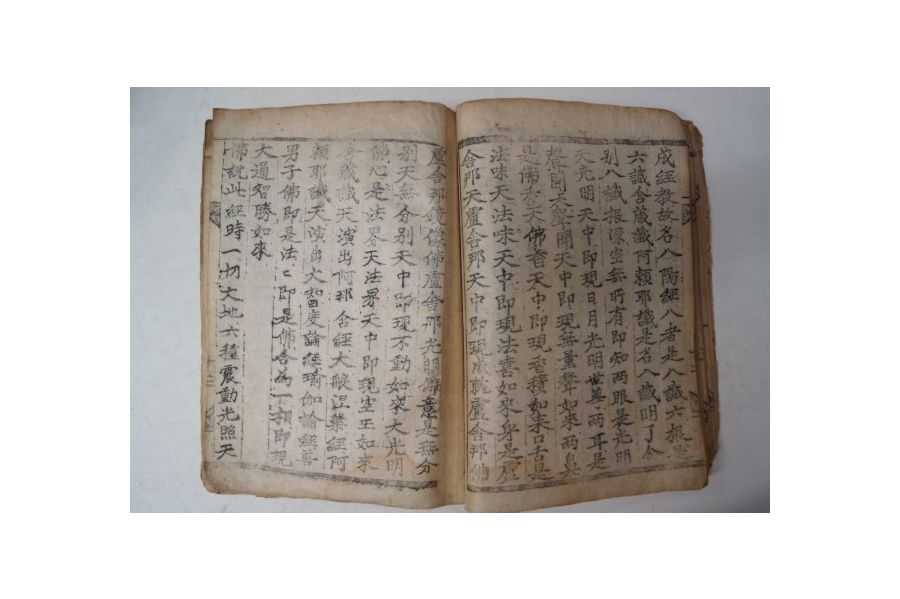 成經教故名八陽經八者是八識六根是
六識含藏識阿頼耶識是名八識明了分
别八識根源空無所有即知两眼是光明
天光明天中即現日月光明世尊两耳是
聲聞天聲聞天中即現無量聲如來两鼻
是佛香天佛香天中即現香積如來口舌是
法味天法味天中即現法喜如來身是盧
舍那天盧舍那天中即現成就盧舍那佛
盧舍那鏡像佛盧舍那光明佛意是無分
别天無分别天中即現不動如來大光明
佛心是法界天法界天中即現空王如來
含藏識天演出阿那含經大般涅槃經阿
頼耶識天演出大智度論經瑜伽論經善
男子佛即是法法即是佛合為一相即現
大通智勝如來
佛說此經時一切大地六種震動光照天